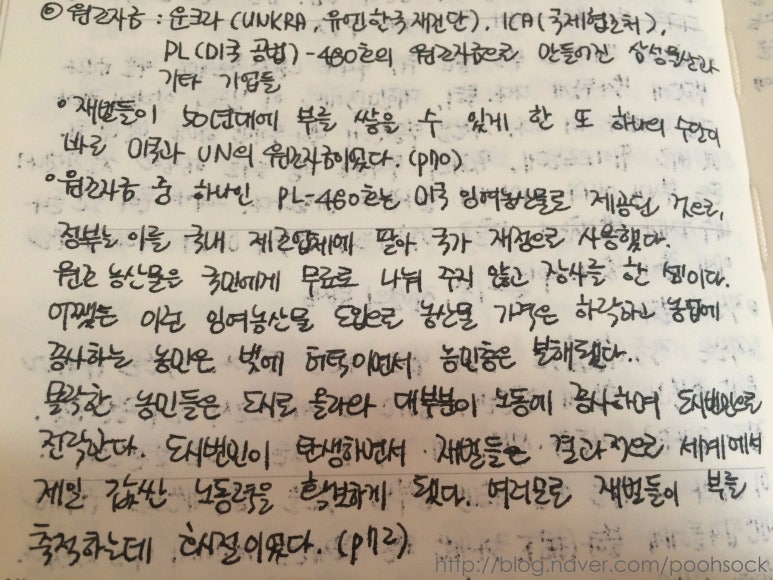 ⑥ 원조자금 : 운크라 (UNKRA, 유엔한국재건단), ICA(국제협조처),
PL(미국 공법)-480호의 원조자금으로 만들어진 삼성물산과
기타 기업들
• 재벌들이 50년대에 부를 쌓을 수 있게 한 또 하나의 수단이
바로 미국과 UN의 원조자금이었다. (p70)
• 원조자금 중 하나인 PL-480호는 미국 잉여농산물로 제공된 것으로,
정부는 이를 국내 제조업체에 팔아 국가 재정으로 사용했다.
원조 농산물은 국민에게 무료로 나눠 주지 않고 장사를 한 셈이다.
어쨌든 이런 잉여농산물 도입으로 농산물 가격은 하락하고 농업에
종사하는 농민은 빚에 허덕이면서 농민층은 분해됐다.
몰락한 농민들은 도시로 올라와 대부분이 노동에 종사하며 도시빈민으로
전락한다. 도시빈민이 탄생하면서 재벌들은 결과적으로 세계에서
제일 값싼 노동력을 확보하게 됐다. 여러모로 재벌들이 부를
축적하는데 호시절이었다. (p72)
http://blog.naver.com/poohsock